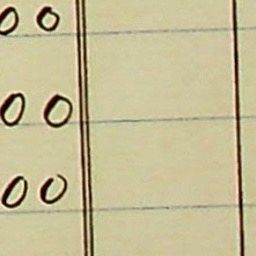 00
00
00